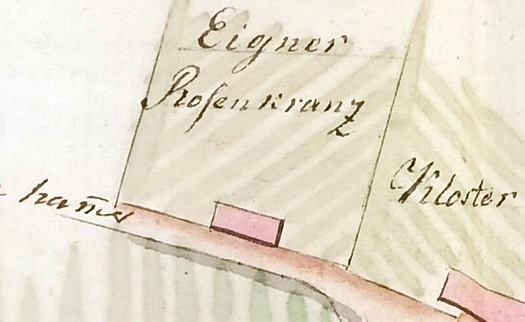 Eigner
Rosenkranz
Kloster